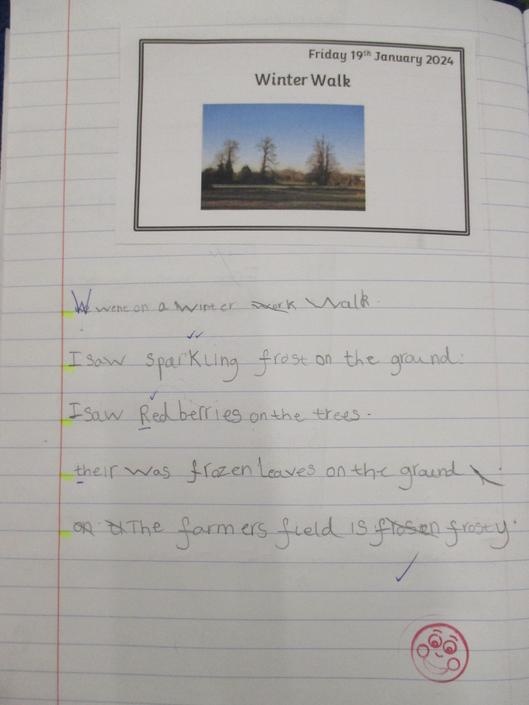 Friday 19th January 2024
Winter Walk
W went on a winter work walk.
I saw sparkling frost on the ground.
I saw Red berries on the trees.
their was frozen leaves on the ground
The farmers field is frosen frosty.